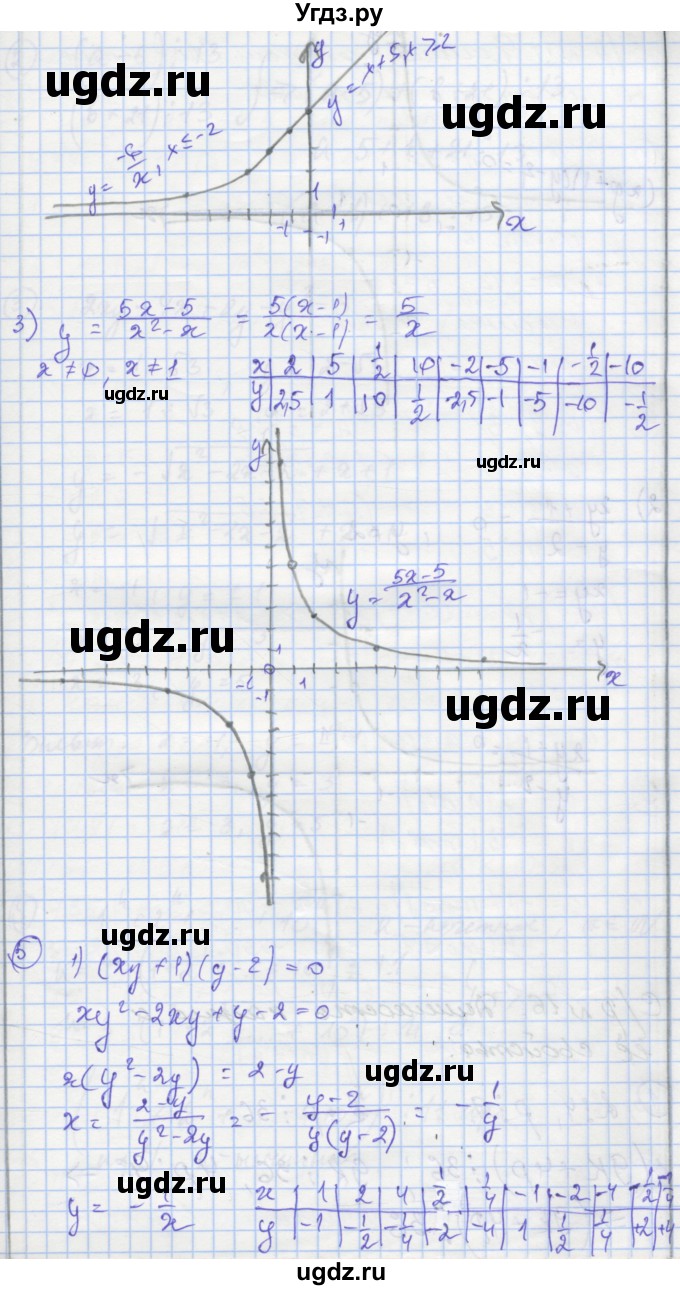 Угдз.ру
y
y = x+5, x>-2
ugdz.ru
ugdz.ru
y = -6/x, x ≤ -2
1
-1 1
-1
x
3) y = (5x-5)/(x²-x) = 5(x-1)/x(x-1) = 5/x
ugdz.ru
x≠0, x≠1
x | 2 | 5 | 1/2 | 10 | -2 | -5 | -1 | -1/2 | -10
y | 2,5 | 1 | 10 | 1/2 | -2,5 | -1 | -5 | -10 | -1/2
y
ugdz.ru
y = (5x-5)/(x²-x)
ugdz.ru
1
-1 0 1
-1
x
ugdz.ru
ugdz.ru
5 1) (xy+1)(y-2)=0
xy²-2xy+y-2=0
ugdz.ru
x(y²-2y) = 2-y
x = (2-y)/(y²-2y) = - (y-2)/y(y-2) = - 1/y
ugdz.ru
y = - 1/x
x | 1 | 2 | 4 | 1/2 | 1/4 | -1 | -2 | -4 | -1/2 | -1/4
y | -1 | -1/2 | -1/4 | -2 | -4 | 1 | 1/2 | 1/4 | +2 | +4
ugdz.ru